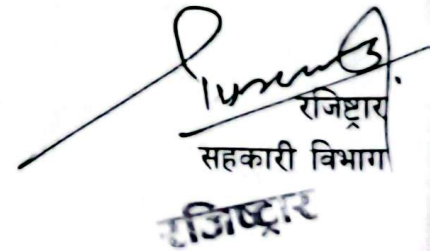 रजिष्ट्रार
सहकारी विभाग
रजिष्ट्रार